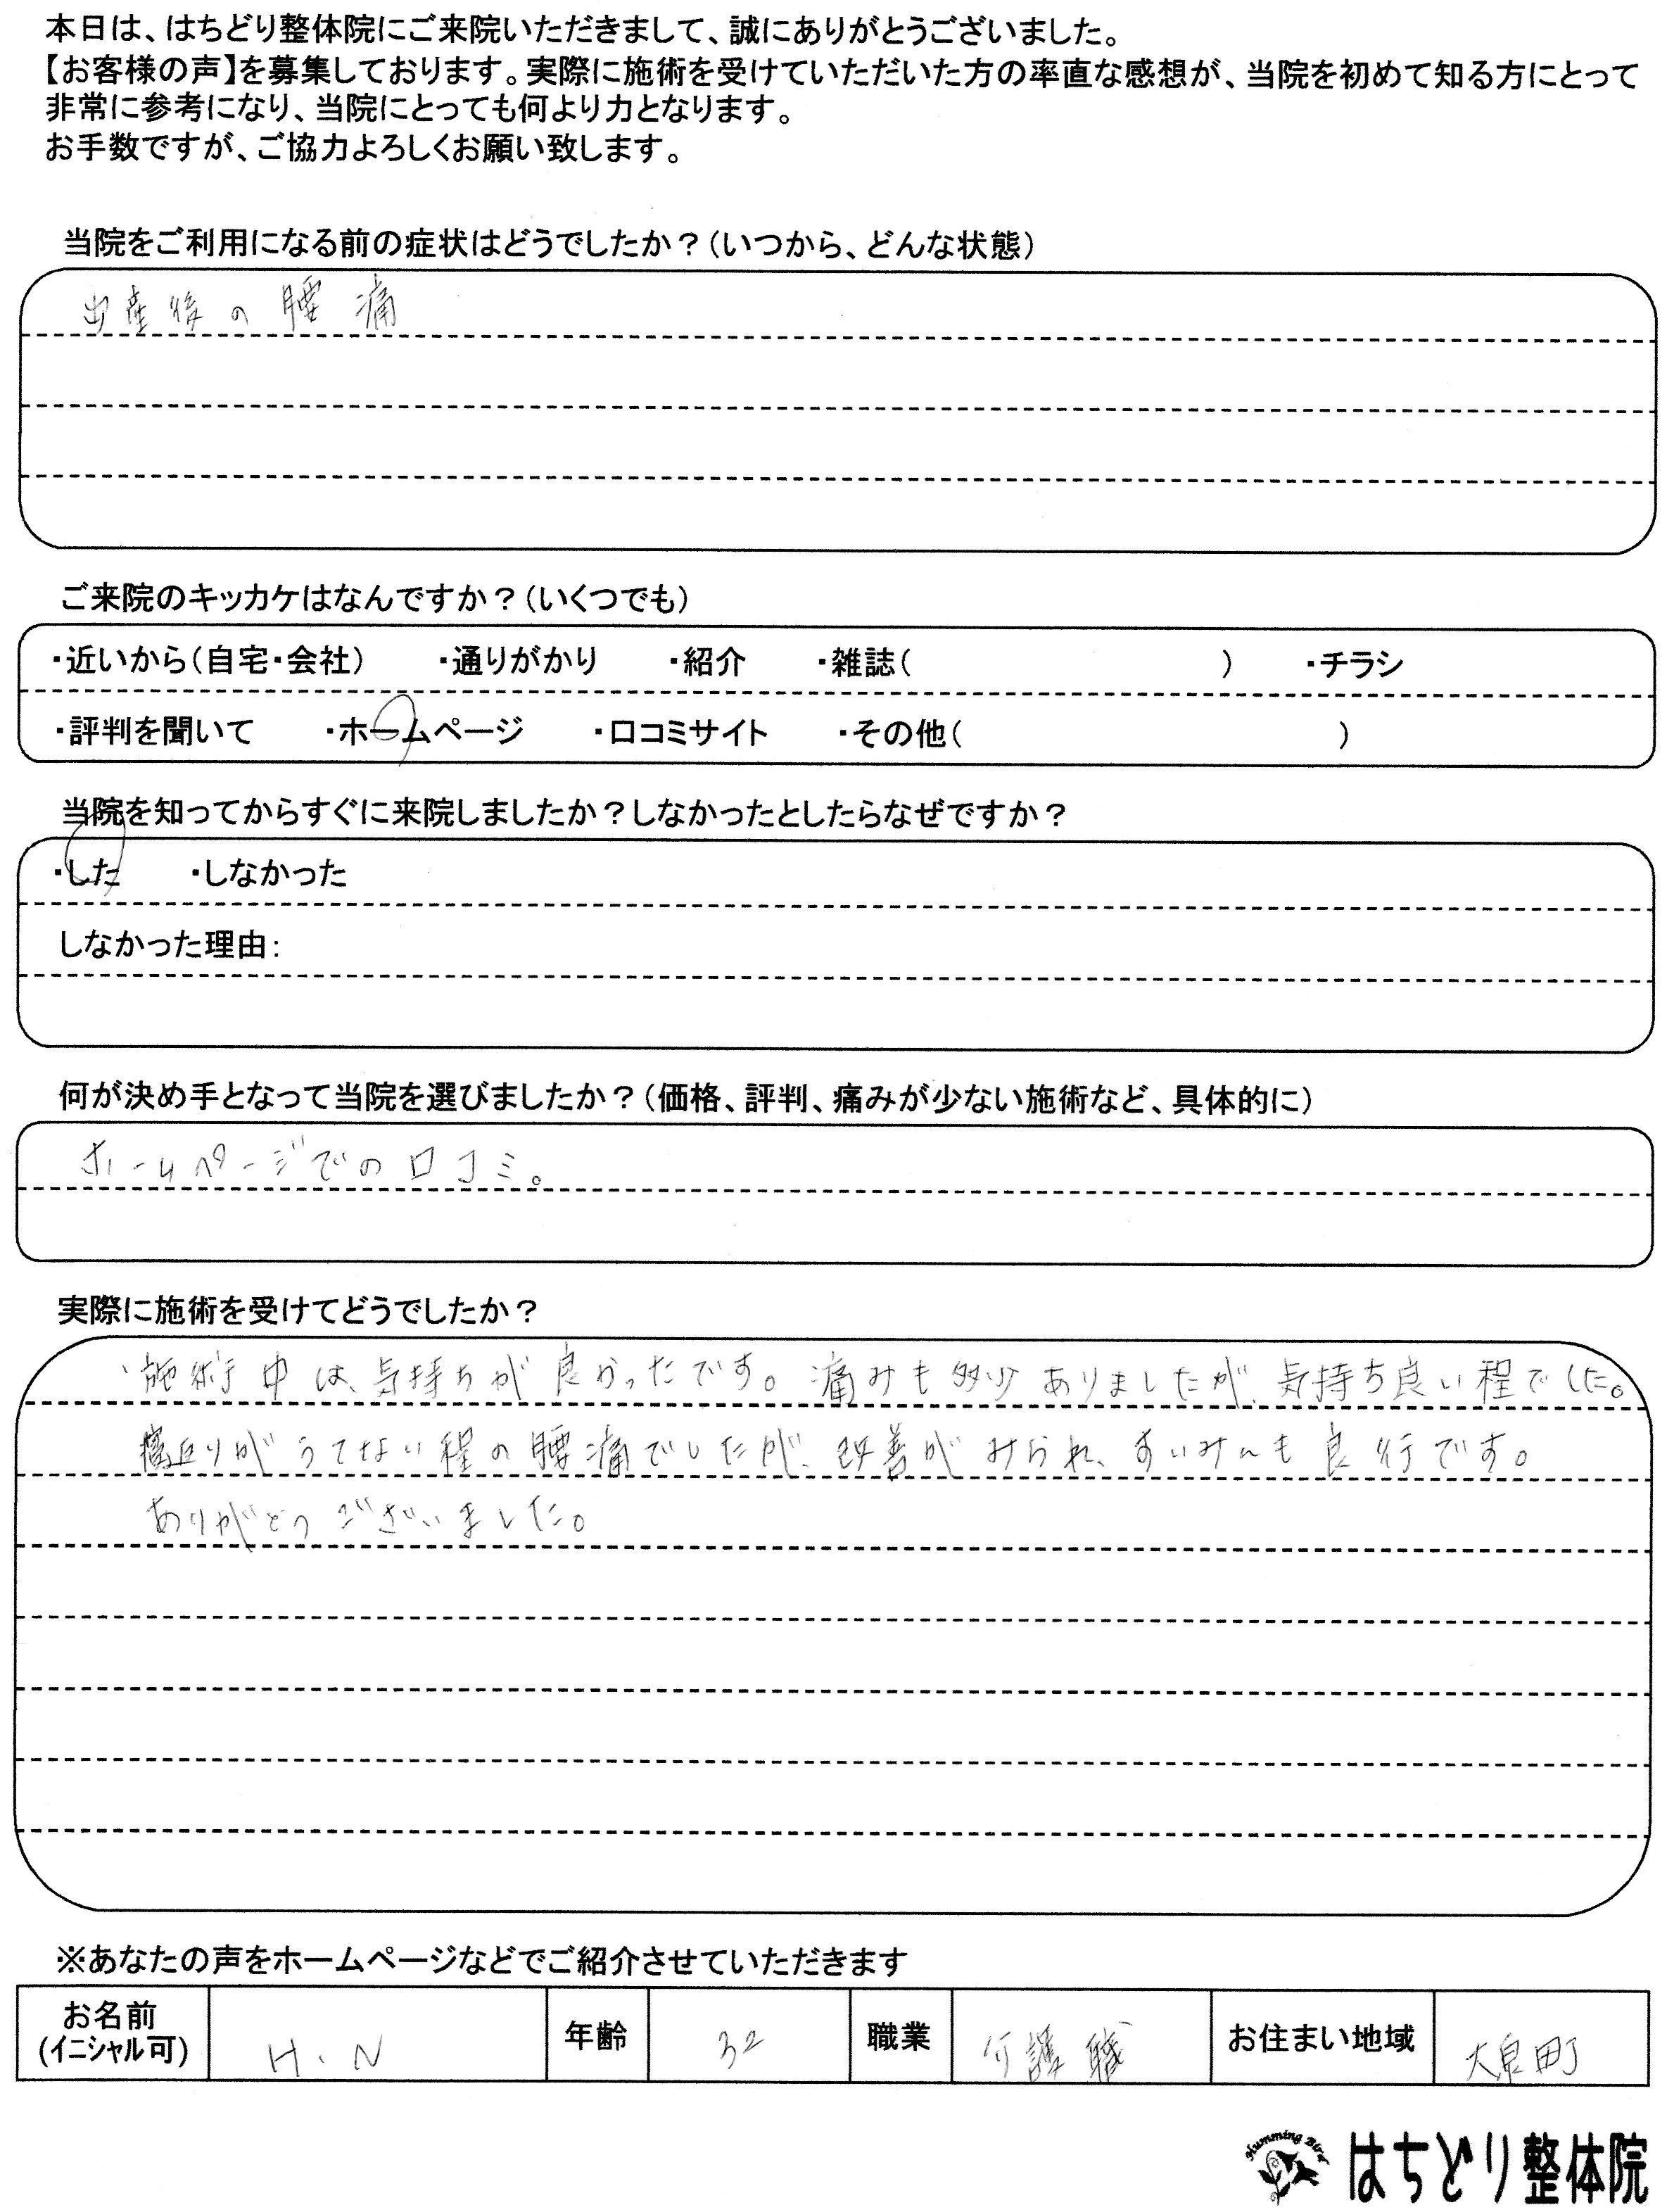 本日は、はちどり整体院にご来院いただきまして、誠にありがとうございました。
【お客様の声】を募集しております。実際に施術を受けていただいた方の率直な感想が、当院を初めて知る方にとって
非常に参考になり、当院にとっても何より力となります。
お手数ですが、ご協力よろしくお願い致します。
当院をご利用になる前の症状はどうでしたか？（いつから、どんな状態）
出産後の腰痛
ご来院のキッカケはなんですか？（いくつでも）
・近いから（自宅・会社） ・通りがかり ・紹介 ・雑誌（ ） ・チラシ
・評判を聞いて ・ホームページ ・口コミサイト ・その他（ ）
当院を知ってからすぐに来院しましたか？しなかったとしたらなぜですか？
・した ・しなかった
しなかった理由：
何が決め手となって当院を選びましたか？（価格、評判、痛みが少ない施術など、具体的に）
ホームページでの口コミ。
実際に施術を受けてどうでしたか？
施術中は、気持ちが良かったです。痛みも多少ありましたが、気持ち良い程でした。
寝返りがうてない程の腰痛でしたが、改善がみられ、すいみんも良行です。
ありがとうございました。
※あなたの声をホームページなどでご紹介させていただきます
お名前
（イニシャル可） H．N 年齢 32 職業 介護職 お住まい地域 大泉町
Humming Bird はちどり整体院